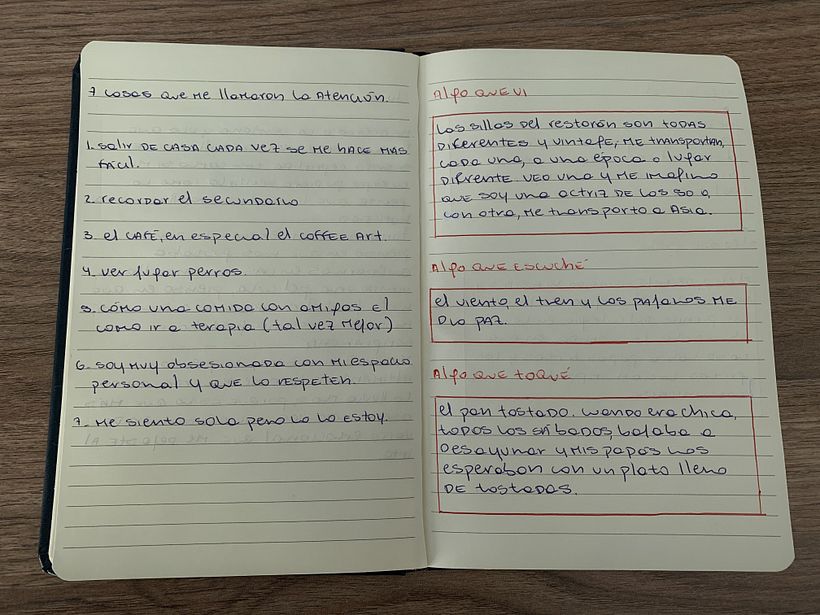 7 cosas que me llamaron la atención.
1. salir de casa cada vez se me hace mas
fácil.
2. recordar el secundario
3. el café, en especial el coffee art.
4. ver jugar perros
5. cómo una comida con amigos el
como ir a terapia (tal vez mejor)
6. soy muy obsesionada con mi espacio
personal y que lo respeten.
7. me siento sola pero lo lo estoy.
Algo que vi
Las sillas del restorán son todas
diferentes y vintage, me transportan,
cada una, a una época o lugar
diferente veo una y me imagino
que soy una actriz de los 50 o,
con otra, me transporto a Asia.
Algo que escuché
el viento, el tren y los pájaros me
dio paz.
Algo que toqué
el pan tostado. cuando era chica,
todos los sábados, bajaba a
desayunar y mis papás nos
esperaban con un plato lleno
de tostadas.